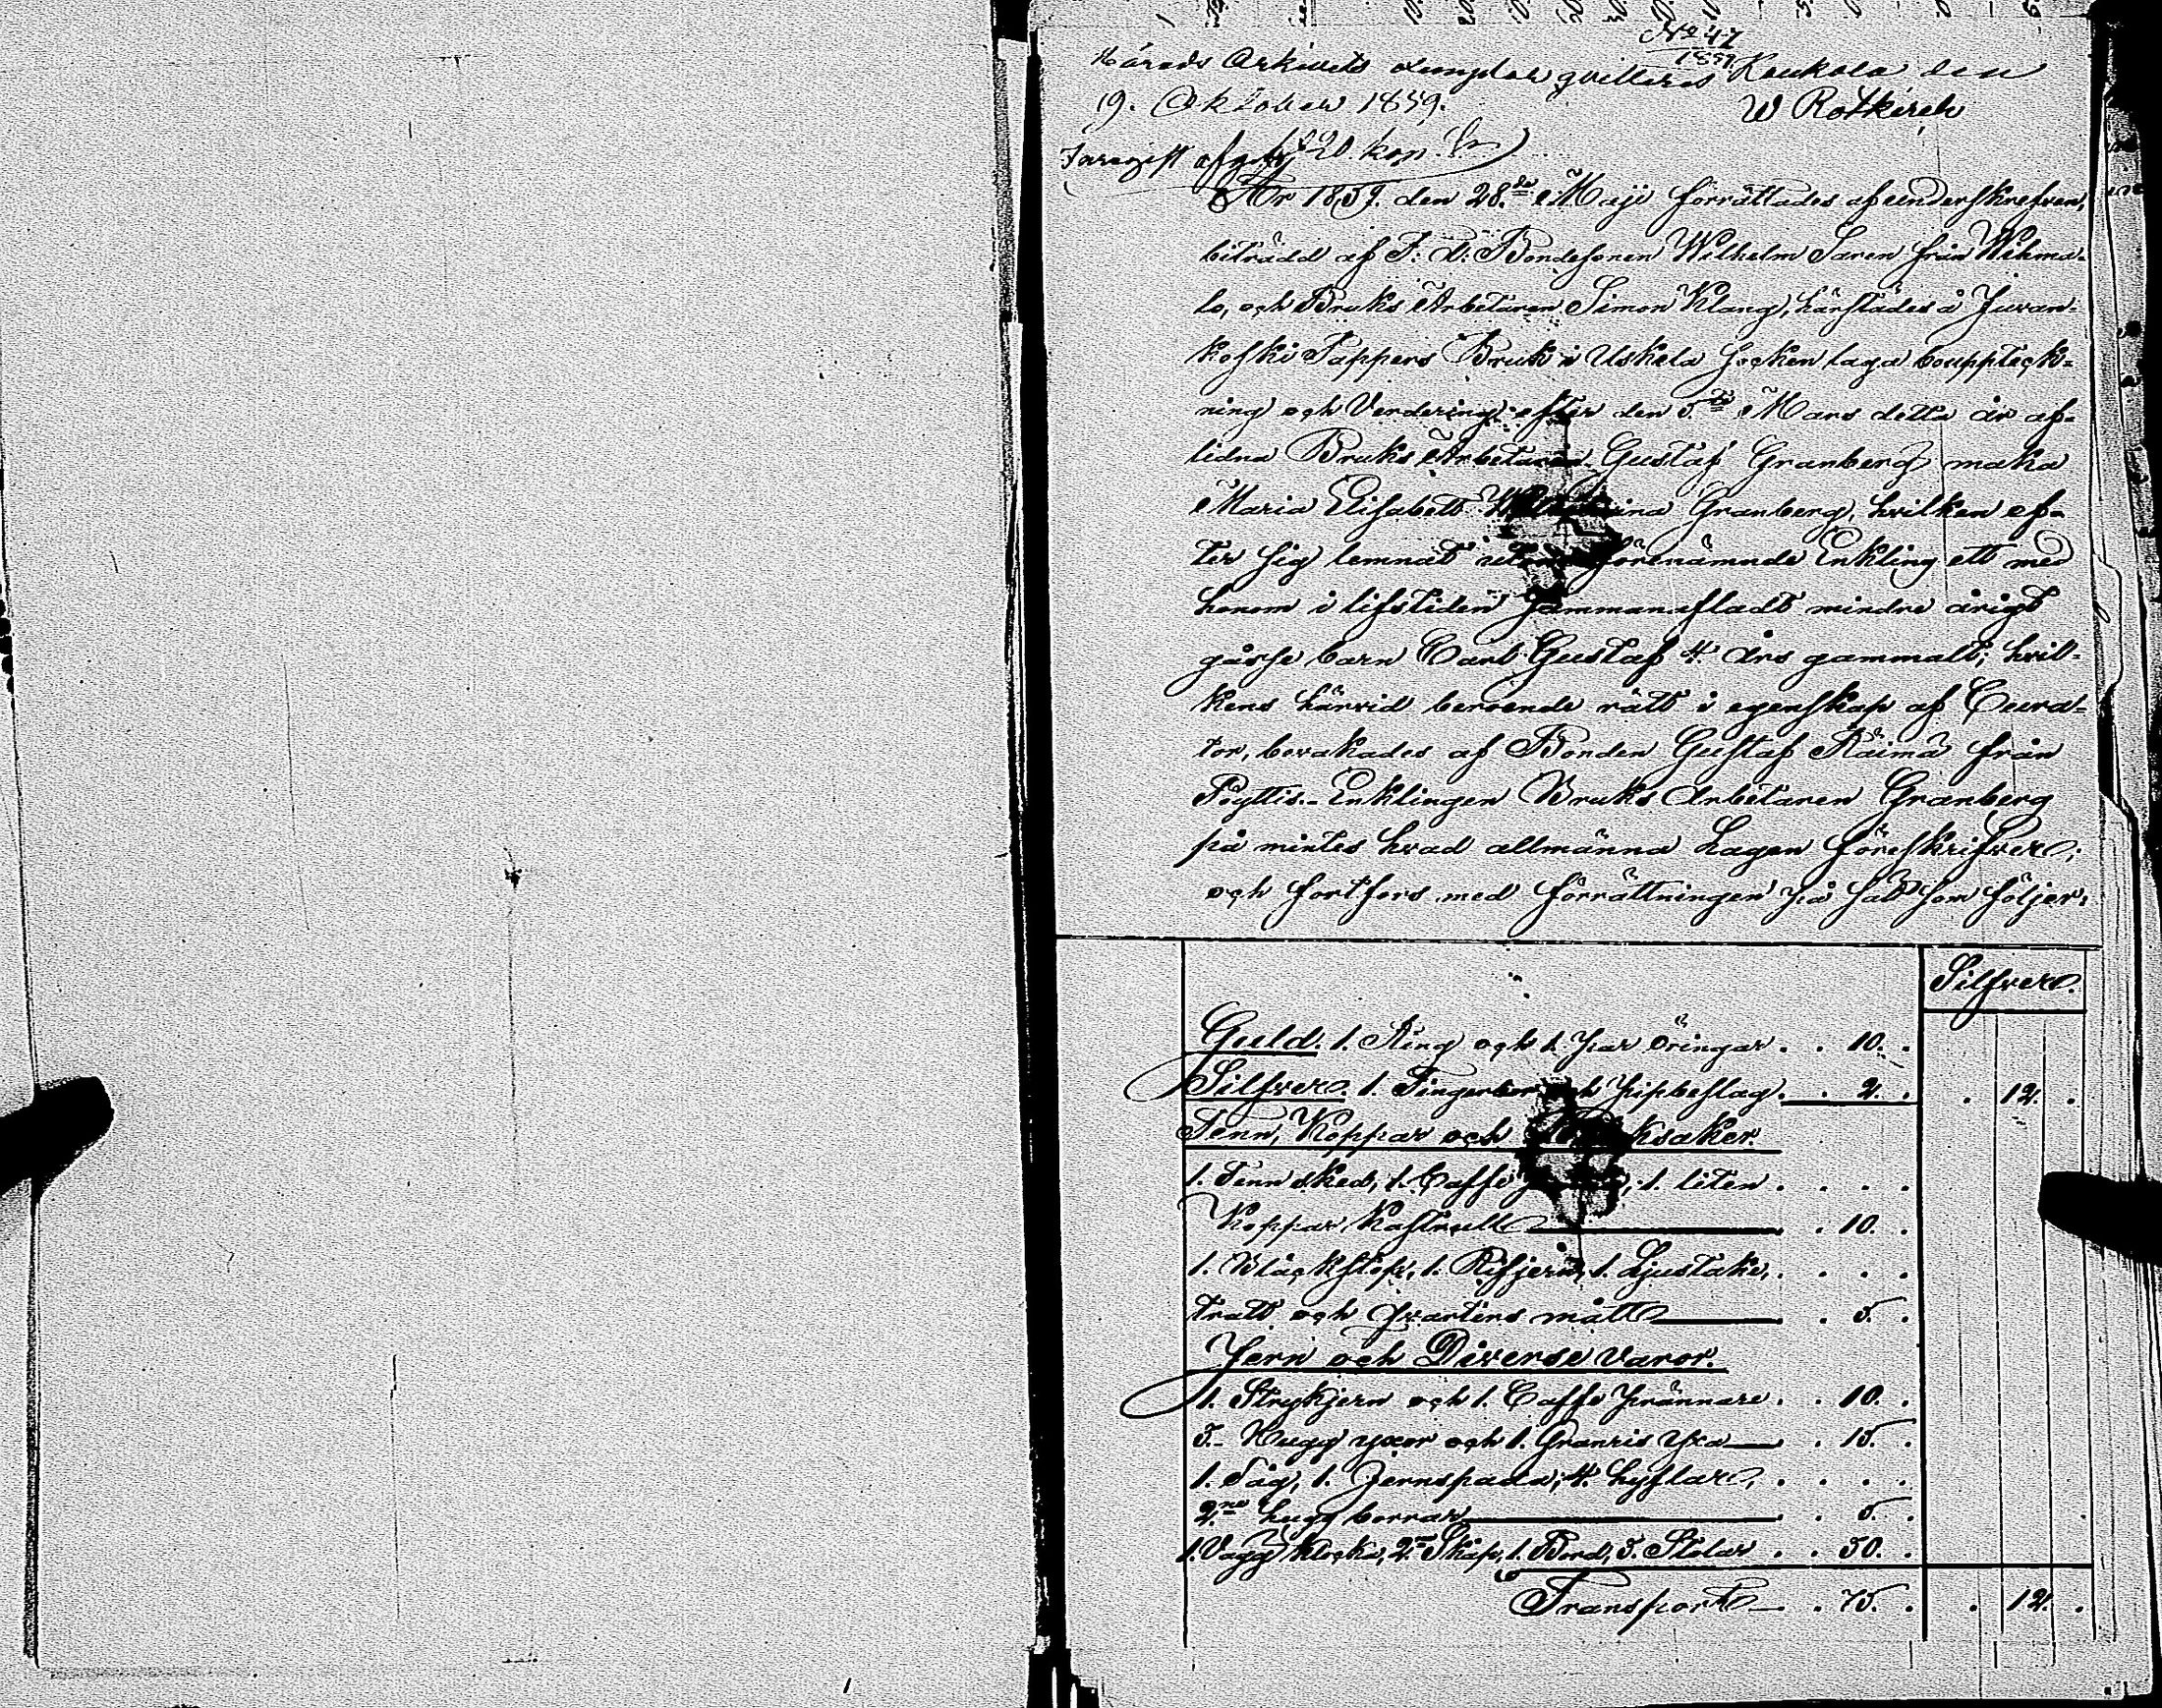 No 47
1859.
Härads Arkivets exemplar qvitteras Koukola den
19. Oktober 1859.
W Rotkirch
Fattigafgift 20. kop. Sr
År 1859. den 28.de Maji förrättades af undertskrefven,
biträdd af F: d: Bondesonen Wilhelm Saren från Wihma-
lo, och Bruks Arbetaren Simon Klang, härstädes å Juvan-
koski Pappers Bruk i Uskela Socken laga bouppteck-
ning och Verdering efter den 5.te Mars detta år af-
lidna Bruks Arbetaren Gustaf Granberg maka
Maria Elisabeth Wilhelmina Granberg, hvilken ef-
ter sig lemnat utom förenämnde Enkling ett med
honom i lifstiden sammanafladt mindre årigt
gåsse barn Carl Gustaf 4. års gammalt; hvil-
kens härvid beroende rätt i egenskap af Cura-
tor, bevakades af Bonden Gustaf Räimä från
Pöyttis.- Enklingen Bruks Arbetaren Granberg
på mintes hvad allmänna Lagen föreskrifver;
och fortfors med förrättningen på sätt som följer:
Silfver.
Guld. 1. Ring och 1. par öringar . . 10. .
Silfver. 1. Fingerbor och pipbeslag . . 2. . . 12. .
Tenn, Koppar och Bläcksaker.
1. Tenn sked, 1. Caffe panna, 1. liten . . . .
Koppar Kastrull . 10. .
1. Bläckstop, 1. Rifjern, 1. Ljustake, . . . .
tratt och qvarters mått . 5. .
Jern och Diverse varor.
1. Strykjern och 1. Caffe brännare . . 10. .
3.- Hugg yxor och 1. Granris yxa . 15. .
1. Såg, 1. Jernspada, 4. hyflar, . . . .
2.ne hugg borrar . . 5. .
1. Vägg klocka, 2.ne Skåp, 1. Bord, 3. Stolar . . 50. .
Transport . 75. . . 12. .